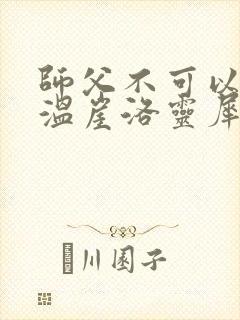 師父不可以
溫崖洛靈犀
川園子